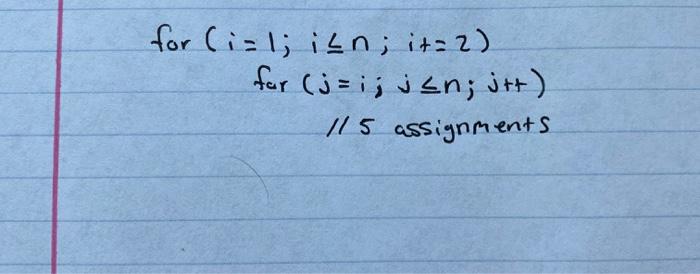 for (i=1; i≤n; i+=2)
for (j=i; j≤n; j++)
// 5 assignments